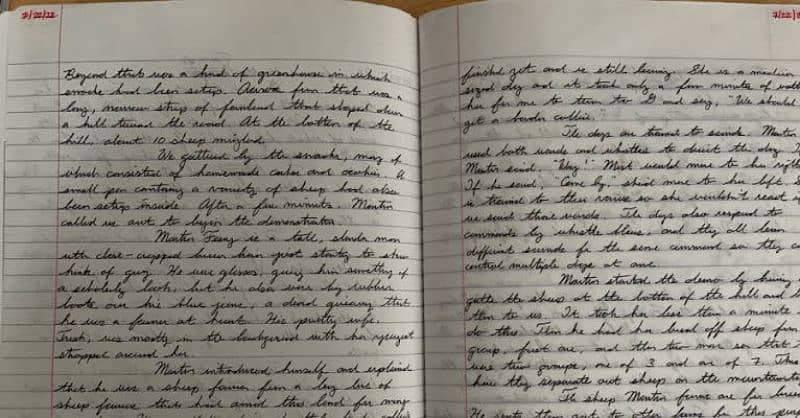 7/22/22
Beyond that was a kind of greenhouse in which
snacks had been setup. Across from that was a
long, narrow strip of farmland that sloped down
a hill toward the road. At the bottom of the
hill, about 10 sheep mingled.
We gathered by the snacks, many of
which consisted of homemade cakes and cookies. A
small pen containing a variety of sheep had also
been setup inside. After a few minutes, Martin
called us out to begin the demonstration.
Martin Feeney is a tall, slender man
with close-cropped brown hair just starting to show
hints of grey. He wore glasses, giving him something of
a scholarly look, but he also wore big rubber
boots over his blue jeans, a dead giveaway that
he was a farmer at heart. His pretty wife,
was mostly in the background with her youngest
strapped around her.
Martin introduced himself and explained
that he was a sheep farmer from a long line of
sheep farmers that had owned this land for many
7/22/
finished yet and is still learning. She is a medium
sized dog and it took only a few minutes of watching
her for me to turn to D and say, "We should
get a border collie."
The dogs are trained to sounds. Martin
used both words and whistles to direct the dog. If
Martin said, "Way!" Mist would move to her right.
If he said, "Come by," she'd move to her left. S
is trained to their voices so she wouldn't react if
we said those words. The dogs also respond to
commands by whistle blows, and they all learn
different sounds for the same command so they can
control multiple dogs at once.
Martin started the demo by having
gather the sheep at the bottom of the hill and b
them to us. It took her less than a minute
do this. Then he had her break off sheep from
group, first one, and then two more so that t
was two groups, one of 3 and one of 7. This
how they separate out sheep on the mountains
The sheep Martin farms are for
He sends them out to other farms for this